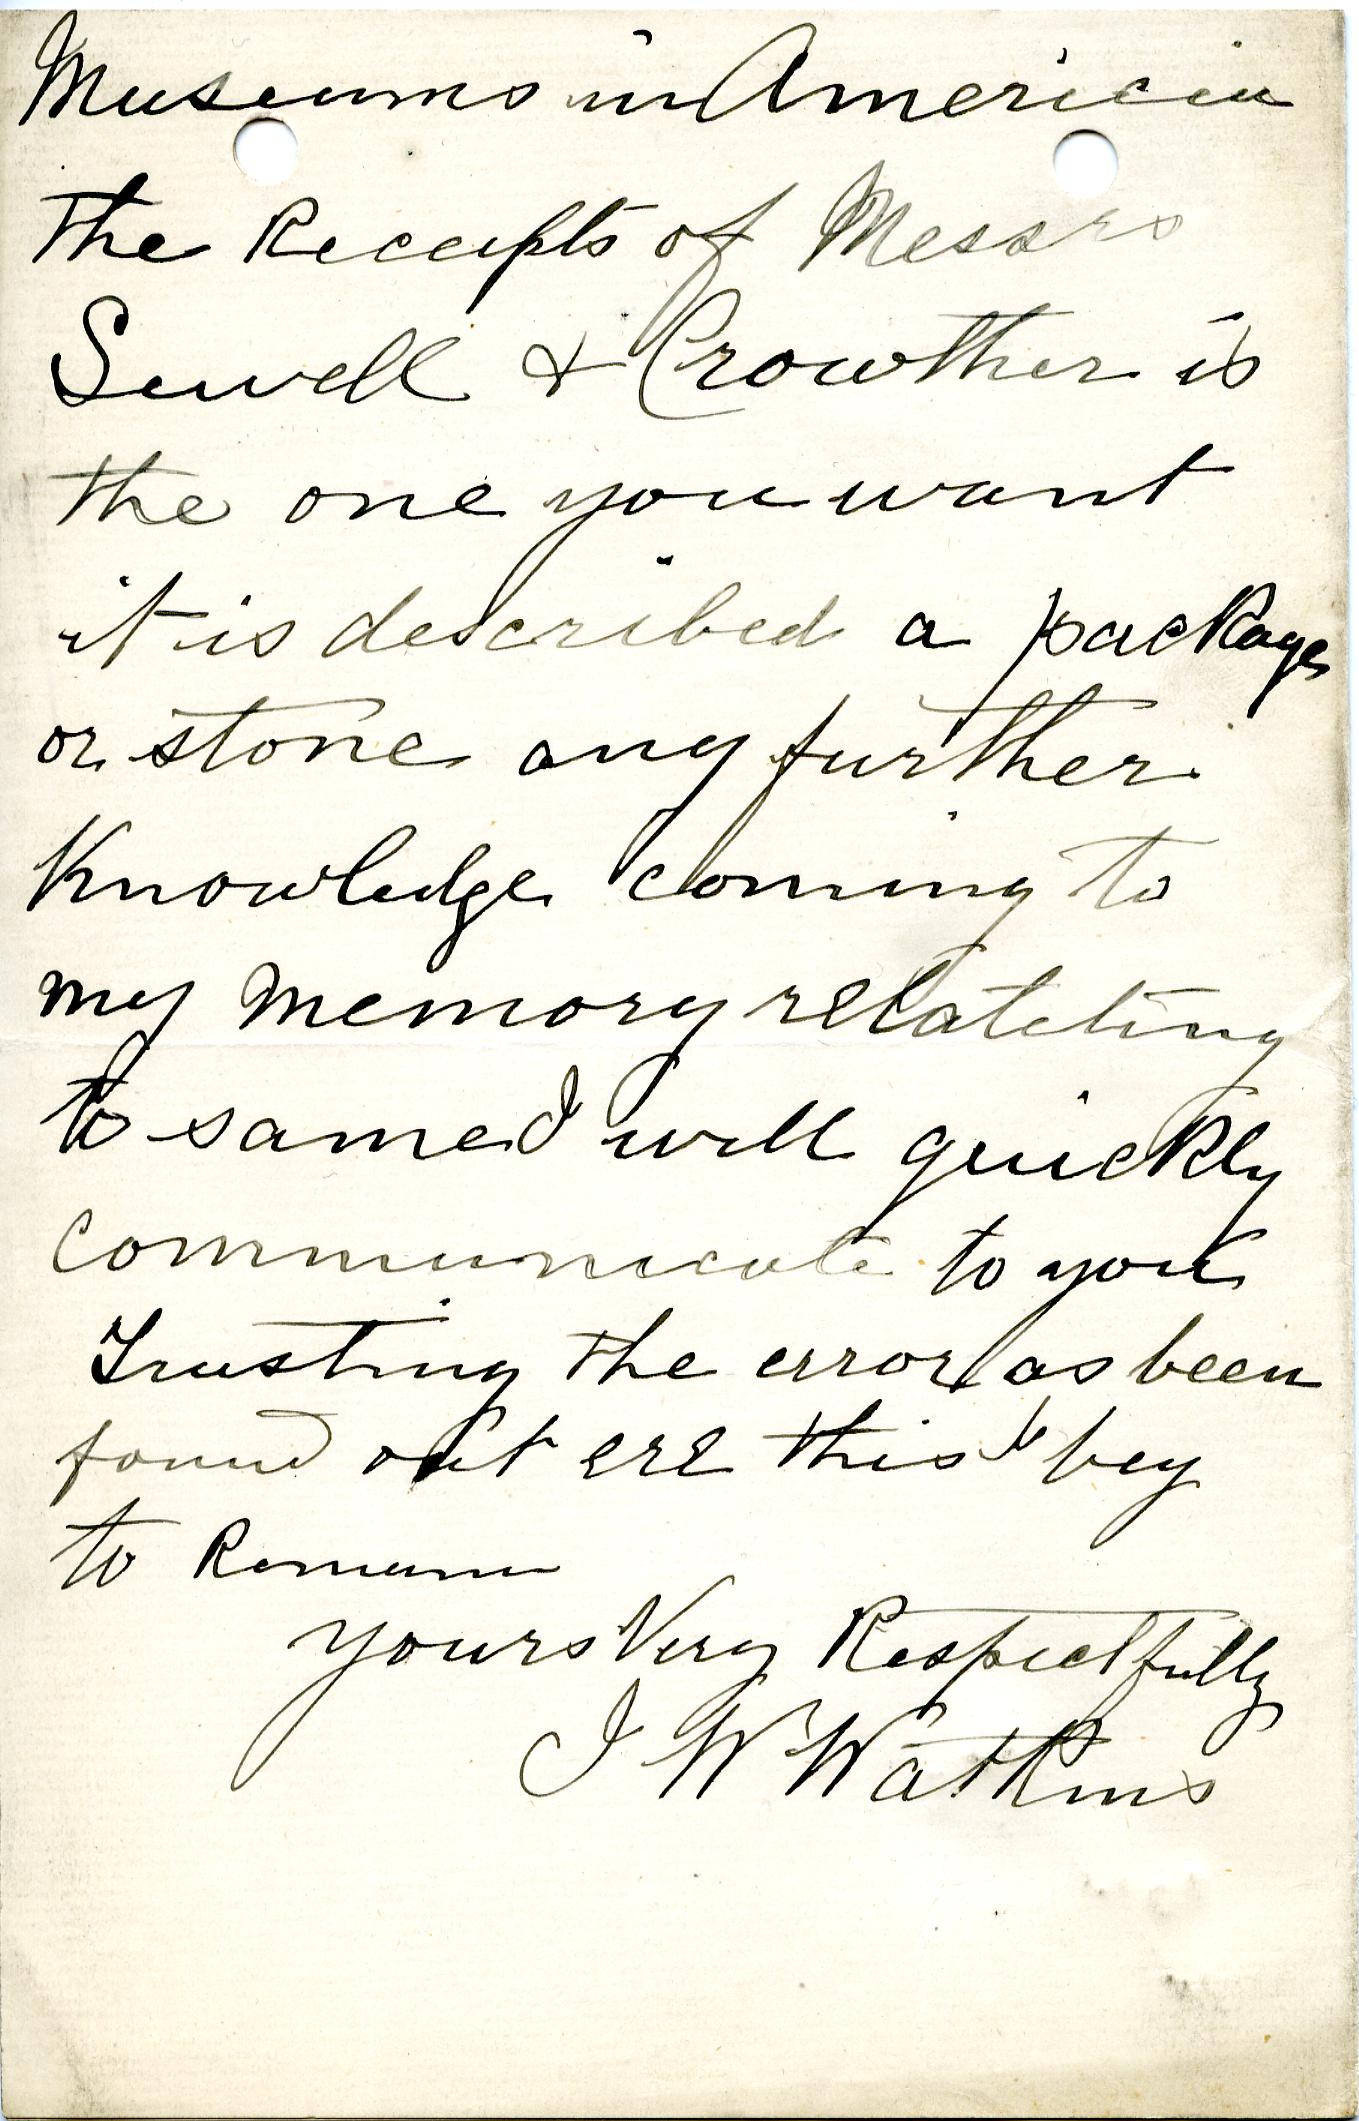 Museums in America
the Receipts of Messrs
Sewell & Crowther is
the one you want
it is described a package
or stone any further
Knowledge coming to
my memory relateting
to same I will quickly
communicate to you
Trusting the error as been
found out ere this I beg
to Remain
yours Very Respectfully
J W Watkins